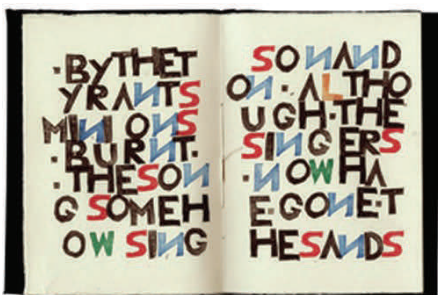 ·BYTHET
YRANTS
MINIONS
·BURNT·
·THESON
G SOMEH
OW SING
SONAND
ON·ALTHO
UGH·THE
SINGERS
·NOWHA
E·GONE·T
HESANDS